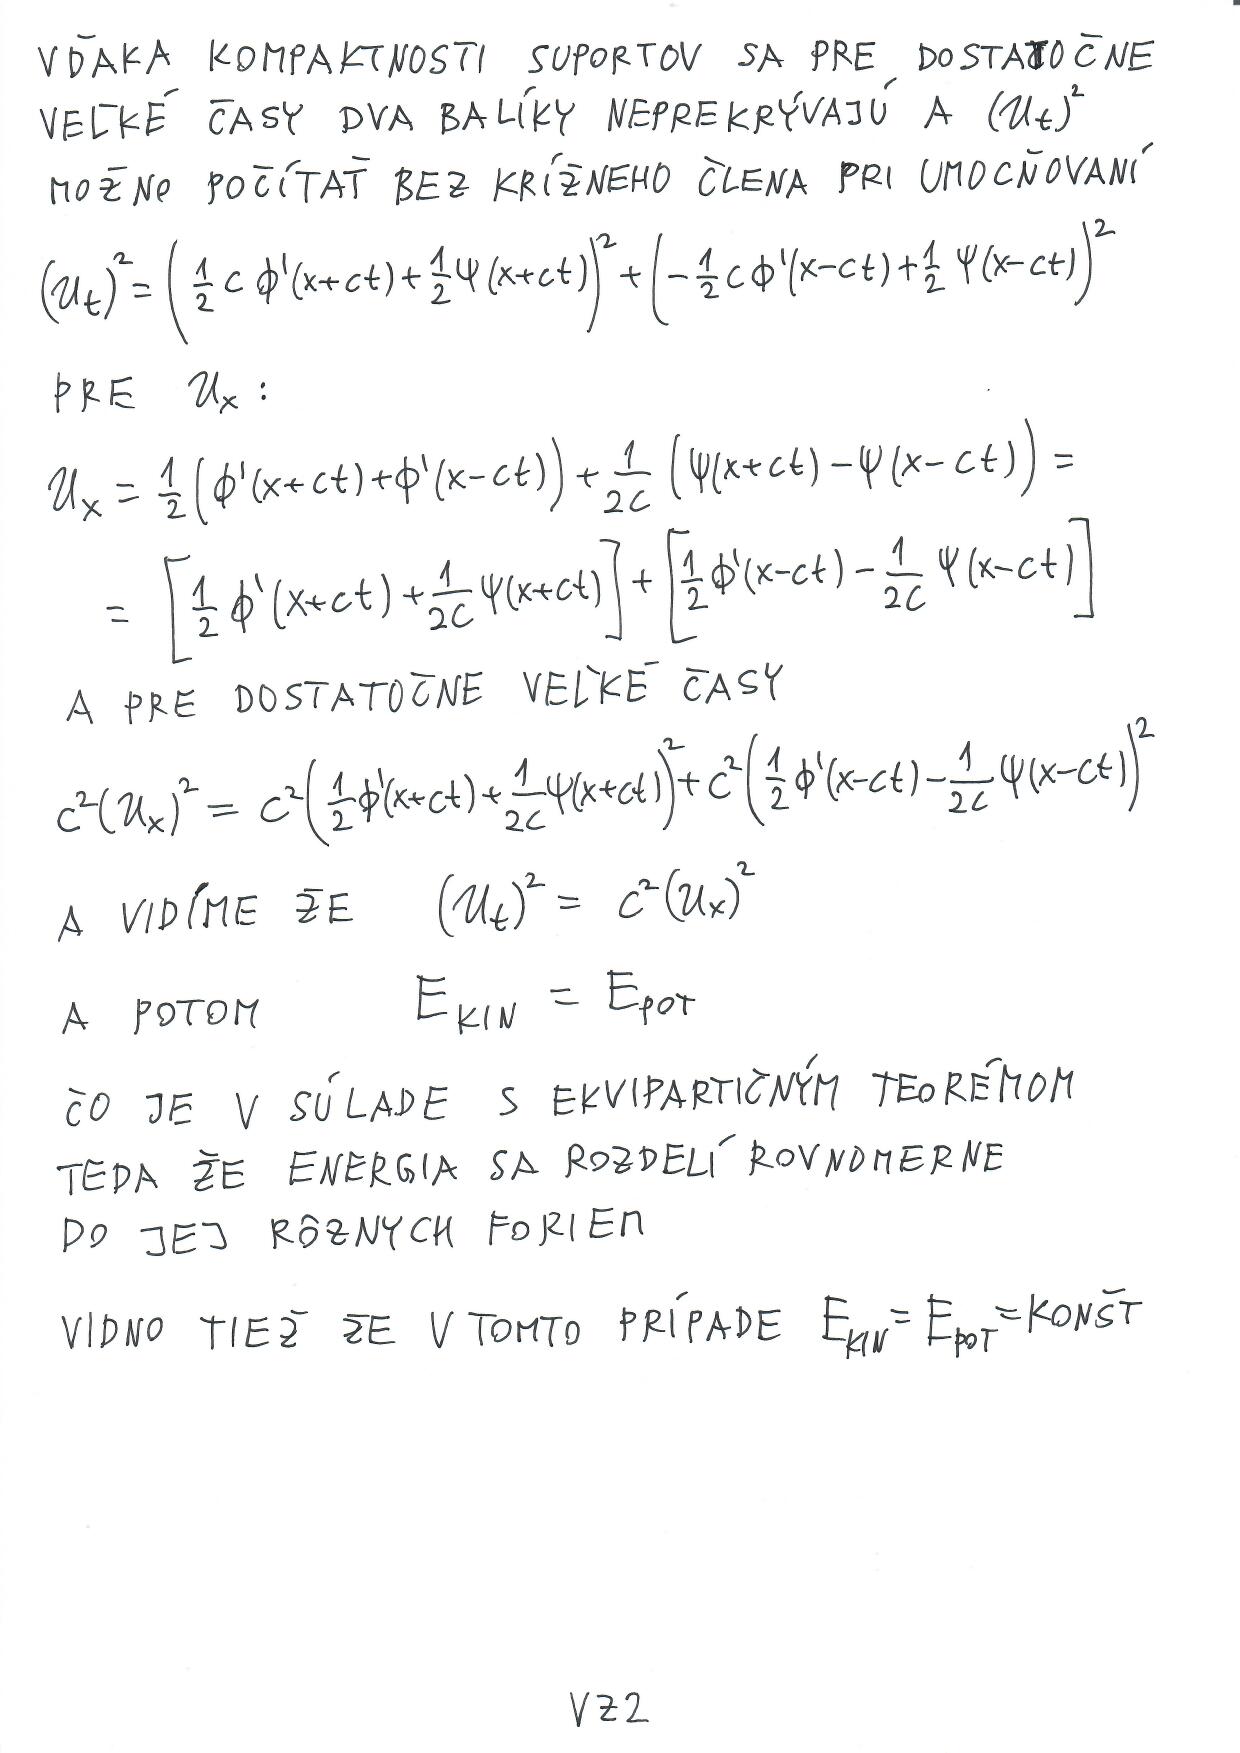 VĎAKA KOMPAKTNOSTI SUPORTOV SA PRE DOSTATOČNE
VEĽKÉ ČASY DVA BALÍKY NEPREKRÝVAJÚ A (u_t)²
MOŽNO POČÍTAŤ BEZ KRÍŽNEHO ČLENA PRI UMOCŇOVANÍ
(u_t)² = (½ c ϕ'(x+ct) + ½ ψ(x+ct))² + (-½ c ϕ'(x-ct) + ½ ψ(x-ct))²
PRE u_x :
u_x = ½ (ϕ'(x+ct) + ϕ'(x-ct)) + 1/2c (ψ(x+ct) - ψ(x-ct)) =
= [½ ϕ'(x+ct) + 1/2c ψ(x+ct)] + [½ ϕ'(x-ct) - 1/2c ψ(x-ct)]
A PRE DOSTATOČNE VEĽKÉ ČASY
c²(u_x)² = c² (½ ϕ'(x+ct) + 1/2c ψ(x+ct))² + c² (½ ϕ'(x-ct) - 1/2c ψ(x-ct))²
A VIDÍME ŽE (u_t)² = c² (u_x)²
A POTOM E_KIN = E_POT
ČO JE V SÚLADE S EKVIPARTIČNÝM TEORÉMOM
TEDA ŽE ENERGIA SA ROZDELÍ ROVNOMERNE
DO JEJ RÔZNYCH FORIEM
VIDNO TIEŽ ŽE V TOMTO PRÍPADE E_KIN = E_POT = KONŠT
VZ2